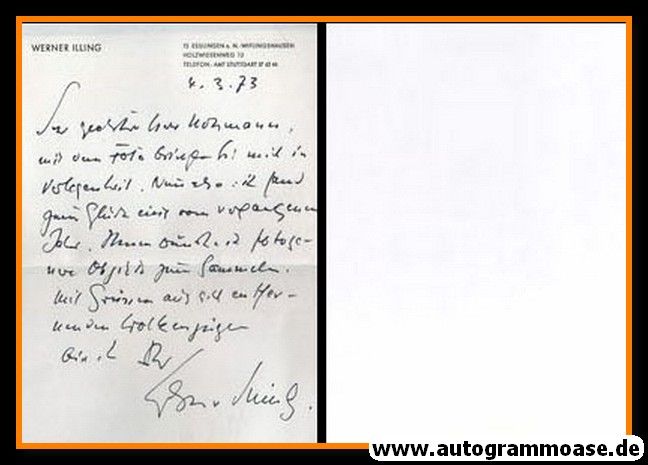 WERNER ILLING
73 ESSLINGEN a. N.-WIFLINGSHAUSEN
HOLZWIESENWEG 10
TELEFON: AMT STUTTGART 37
4. 3. 73
Sehr geehrter Herr Kotzmann,
mit dem Foto bringen Sie mich in
Verlegenheit. Nun also: ich fand
zum Glück eins vom vergangenen
Jahr. Ihnen wünsche ich fotoge-
ne Objekte zum Sammeln.
Mit Grüssen aus sich entfer-
nenden Wolkenzügen
bin ich Ihr
Werner Illing.
www.autogrammoase.de